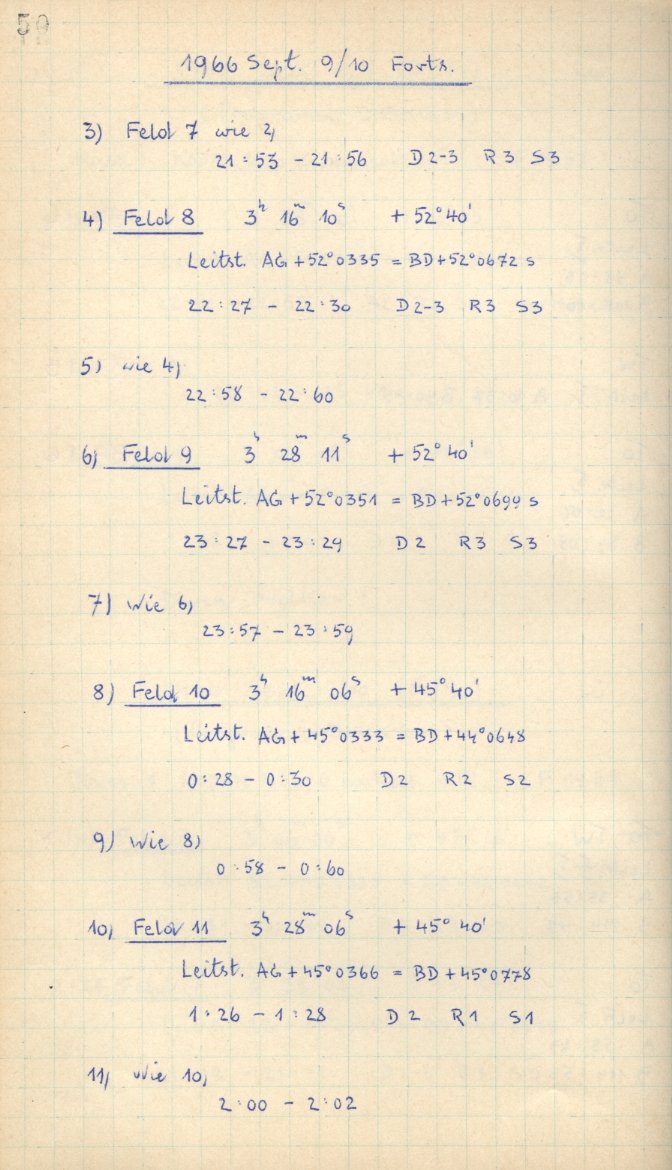 50
1966 Sept. 9/10 Forts.
3) Feld 7 wie 2)
21:53 - 21:56 D2-3 R3 S3
4) Feld 8 3h 16m 10s + 52° 40'
Leitst. AG+52°0335 = BD+52°0672 s
22:27 - 22:30 D2-3 R3 S3
5) wie 4)
22:58 - 22:60
6) Feld 9 3h 28m 11s + 52° 40'
Leitst. AG+52°0351 = BD+52°0699 s
23:27 - 23:29 D2 R3 S3
7) Wie 6)
23:57 - 23:59
8) Feld 10 3h 16m 06s + 45° 40'
Leitst. AG+45°0333 = BD+44°0648
0:28 - 0:30 D2 R2 S2
9) Wie 8)
0:58 - 0:60
10) Feld 11 3h 28m 06s + 45° 40'
Leitst. AG+45°0366 = BD+45°0778
1:26 - 1:28 D2 R1 S1
11) Wie 10)
2:00 - 2:02